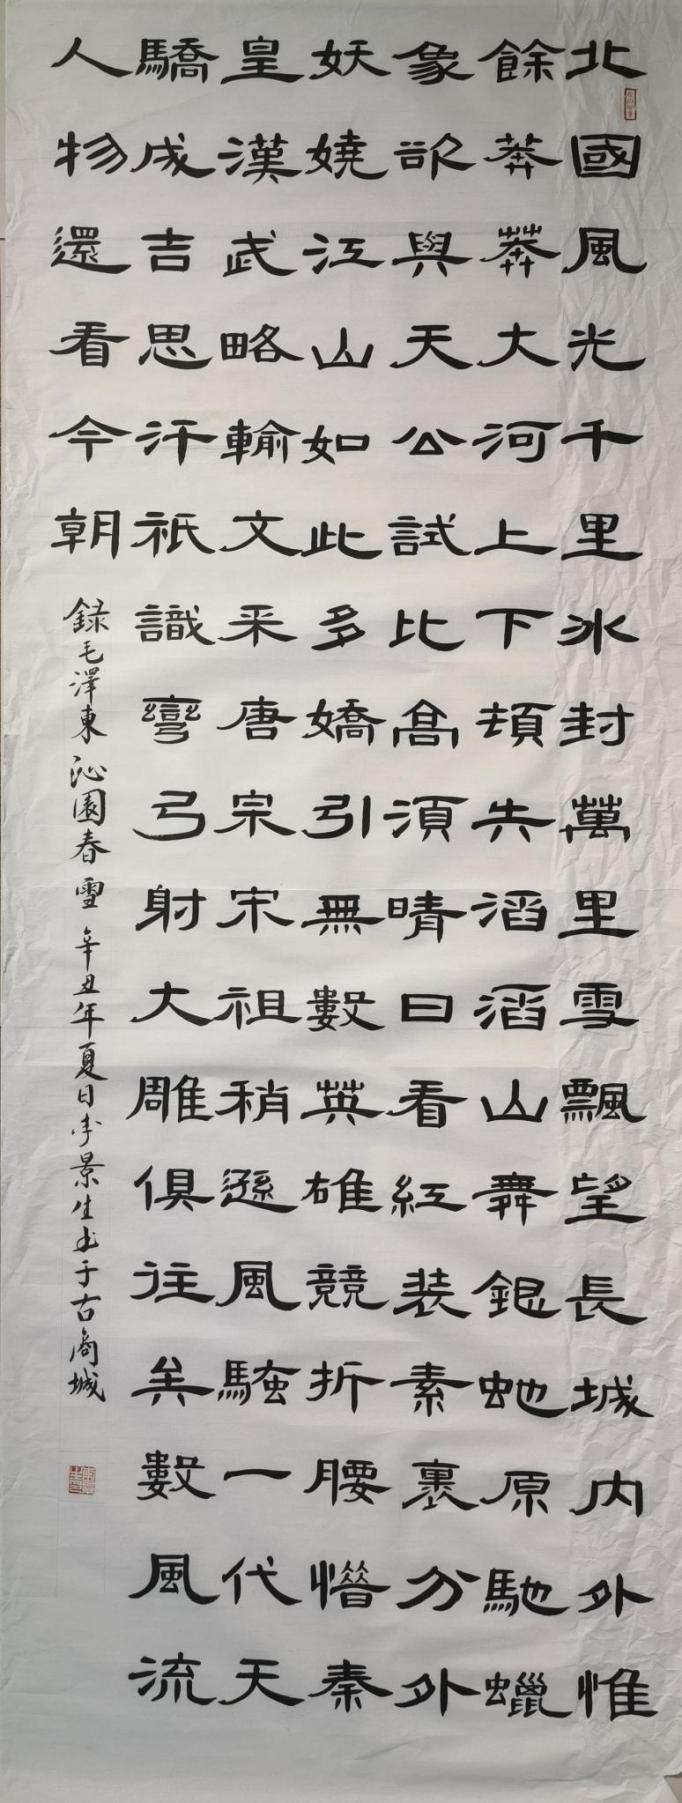 北國風光千里冰封萬里雪飄望長城内外惟
餘莽莽大河上下頓失滔滔山舞銀虵原馳蠟
象欲與天公試比高須晴日看紅装素裹分外
妖嬈江山如此多嬌引無數英雄競折腰惜秦
皇漢武略輸文采唐宗宋祖稍遜風騷一代天
驕成吉思汗祇識彎弓射大雕俱往矣數風流
人物還看今朝
録毛澤東沁園春雪辛丑年夏日李景生书于古商城